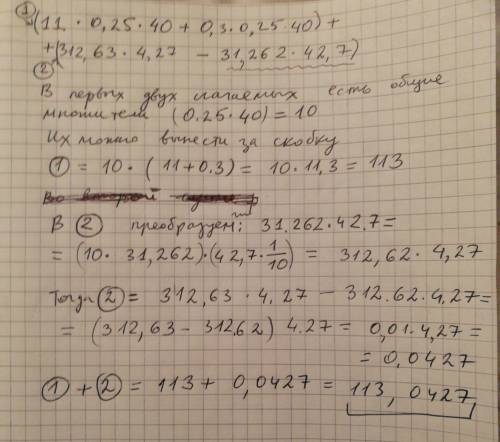 ① (11 · 0,25 · 40 + 0,3 · 0,25 · 40) +
+ (312,63 · 4,27 − 31,262 · 42,7)
②
В первых двух слагаемых есть общие
множители (0.25 · 40) = 10
Их можно вынести за скобку
① = 10 · (11 + 0.3) = 10 · 11,3 = 113
В ② преобразуем: 31.262 · 42.7 =
= (10 · 31,262) · (42,7 · 1/10) = 312,62 · 4,27
Тогда ② = 312,63 · 4.27 − 312.62 · 4,27 =
= (312,63 − 312,62) 4.27 = 0,01 · 4,27 =
= 0,0427
① + ② = 113 + 0,0427 = 113,0427